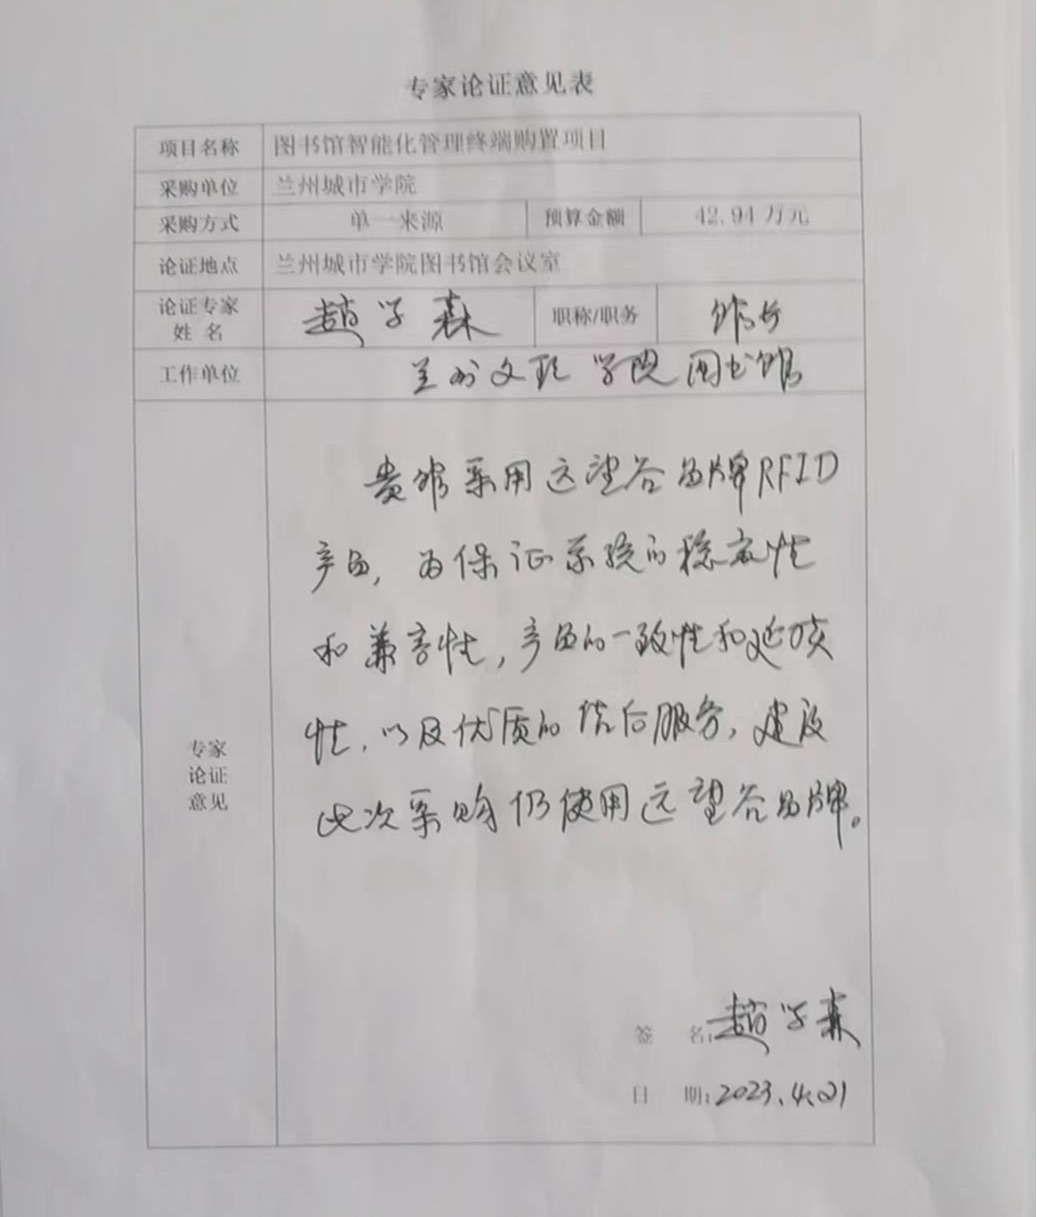 专家论证意见表
项目名称 图书馆智能化管理终端购置项目
采购单位 兰州城市学院
采购方式 单一来源 预算金额 42.94万元
论证地点 兰州城市学院图书馆会议室
论证专家 姓 名 趙学森 职称/职务 馆长
工作单位 兰州文理学院图书馆
贵馆采用远望谷品牌RFID
产品,为保证系统的稳定性
和兼容性,产品的一致性和延续
性,以及优质的售后服务,建议
此次采购仍使用远望谷品牌。
专家
论证
意见
签 名:趙学森
日 期:2023.4.21